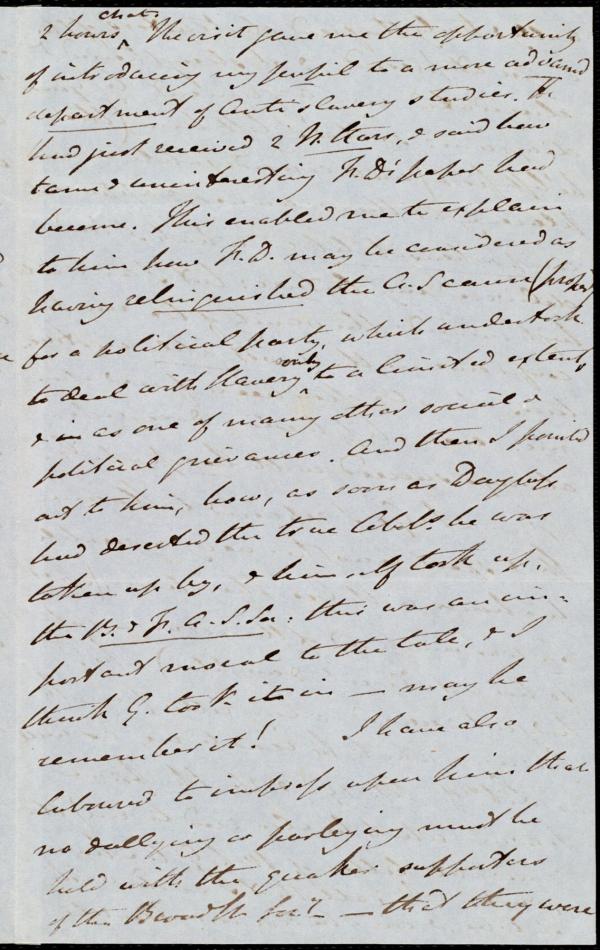 chat.
2 hours ^ The visit gave me the opportunity
of introducing my pupil to a more advanced
department of Anti slavery studies. He
had just received 2 N. Stars, & said how
tame & uninteresting F.D.'s paper had
become. This enabled me to explain
to him how F.D. may be considered as
having relinquished the A.S cause (proper)
for a political party, which undertook
to deal with slavery ^only to a limited extent,
& as one of many other social &
political grievances. And then I pointed
out to him, how, as soon as Douglass
had deserted the true Abols. he was
taken up by, & himself took up,
the B. & F. A. S. So: this was an im-
portant moral to the tale, & I
think G. took it in — may he
remember it! I have also
laboured to impress upon him that
no dallying or parleying must be
held with the quaker supporters
of the Broad St. Socy. — that they were